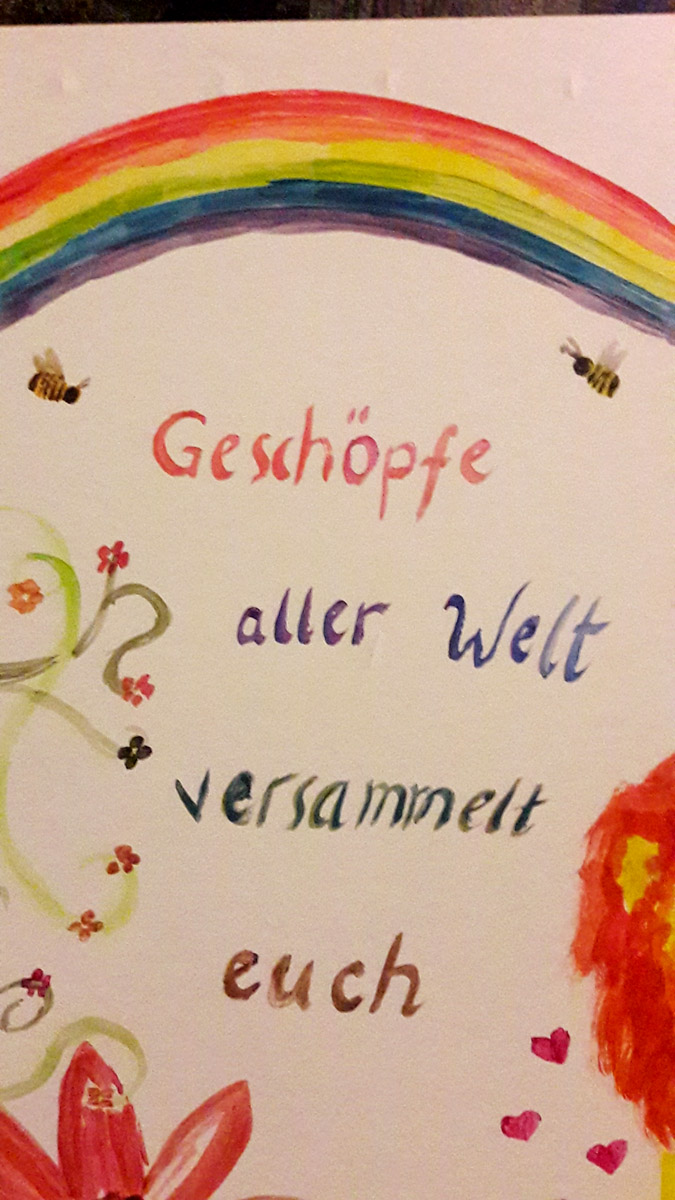 Geschöpfe
aller Welt
versammelt
euch